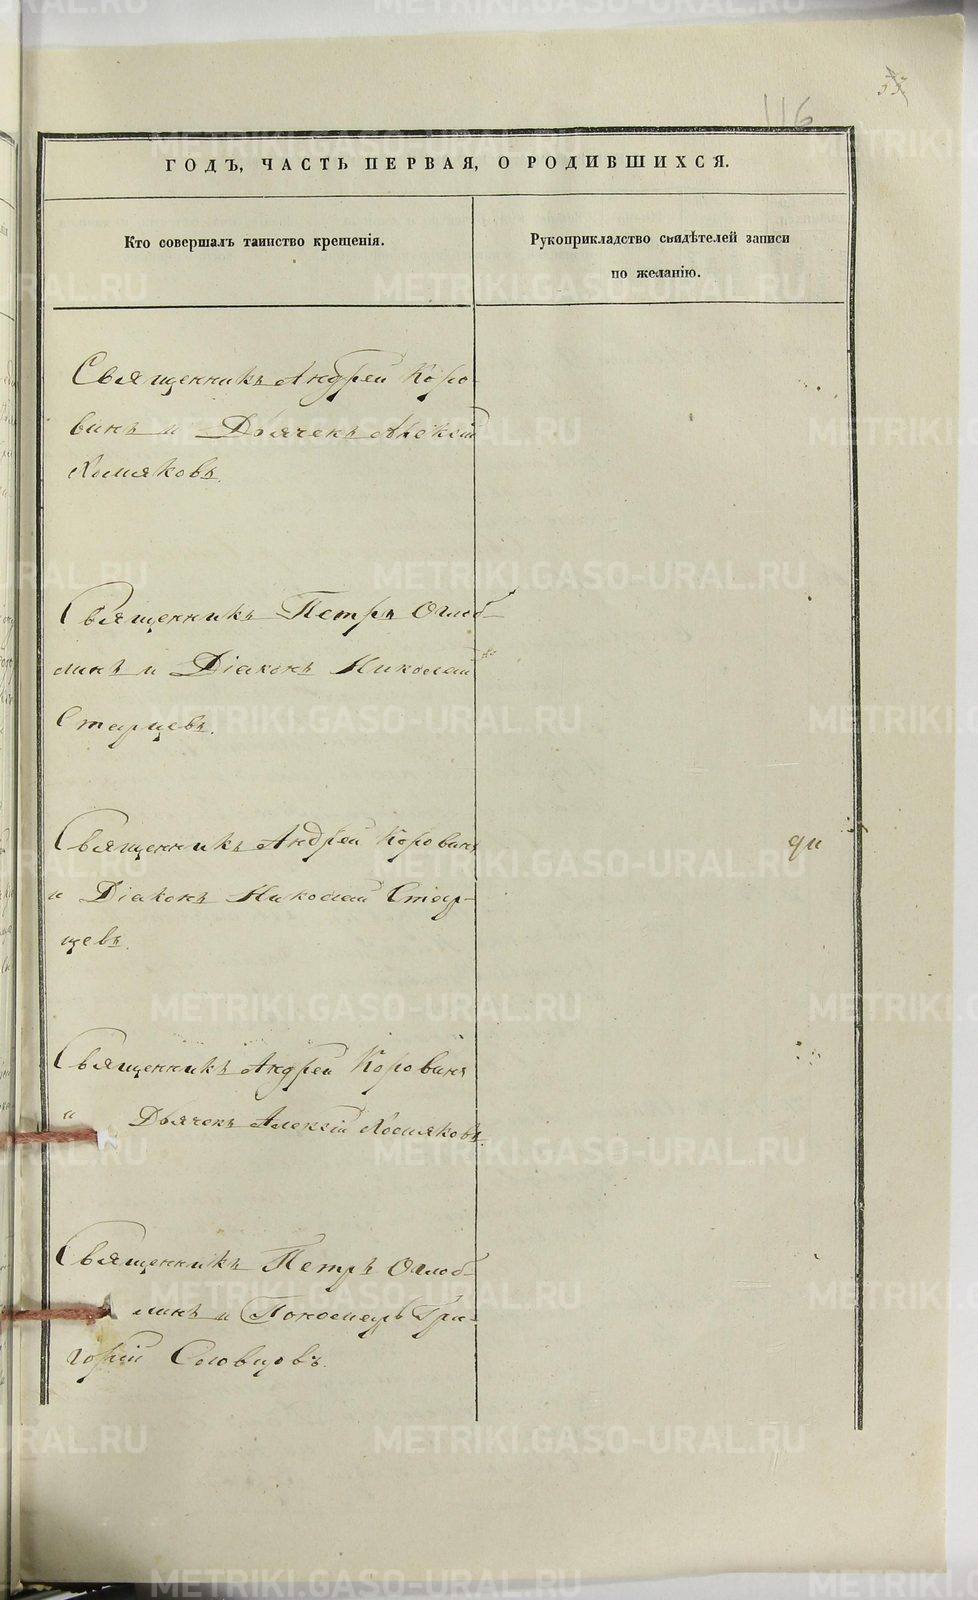 116
ГОДЪ, ЧАСТЬ ПЕРВАЯ, О РОДИВШИХСЯ.
Кто совершалъ таинство крещенія.
Рукоприкладство свидѣтелей записи
по желанію.
Священникъ Андрей Коро-
винъ и Дьячекъ Алексій
Хомяковъ.
Священникъ Петръ Оглоб-
линъ и Діаконъ Николай
Старцевъ.
Священникъ Андрей Коровинъ
и Діаконъ Николай Стар-
цевъ.
Священникъ Андрей Коровинъ
и Дьячекъ Алексій Хомяковъ.
Священникъ Петръ Оглоб-
линъ и Пономарь Гри-
горій Словцовъ.
METRIKI.GASO-URAL.RU